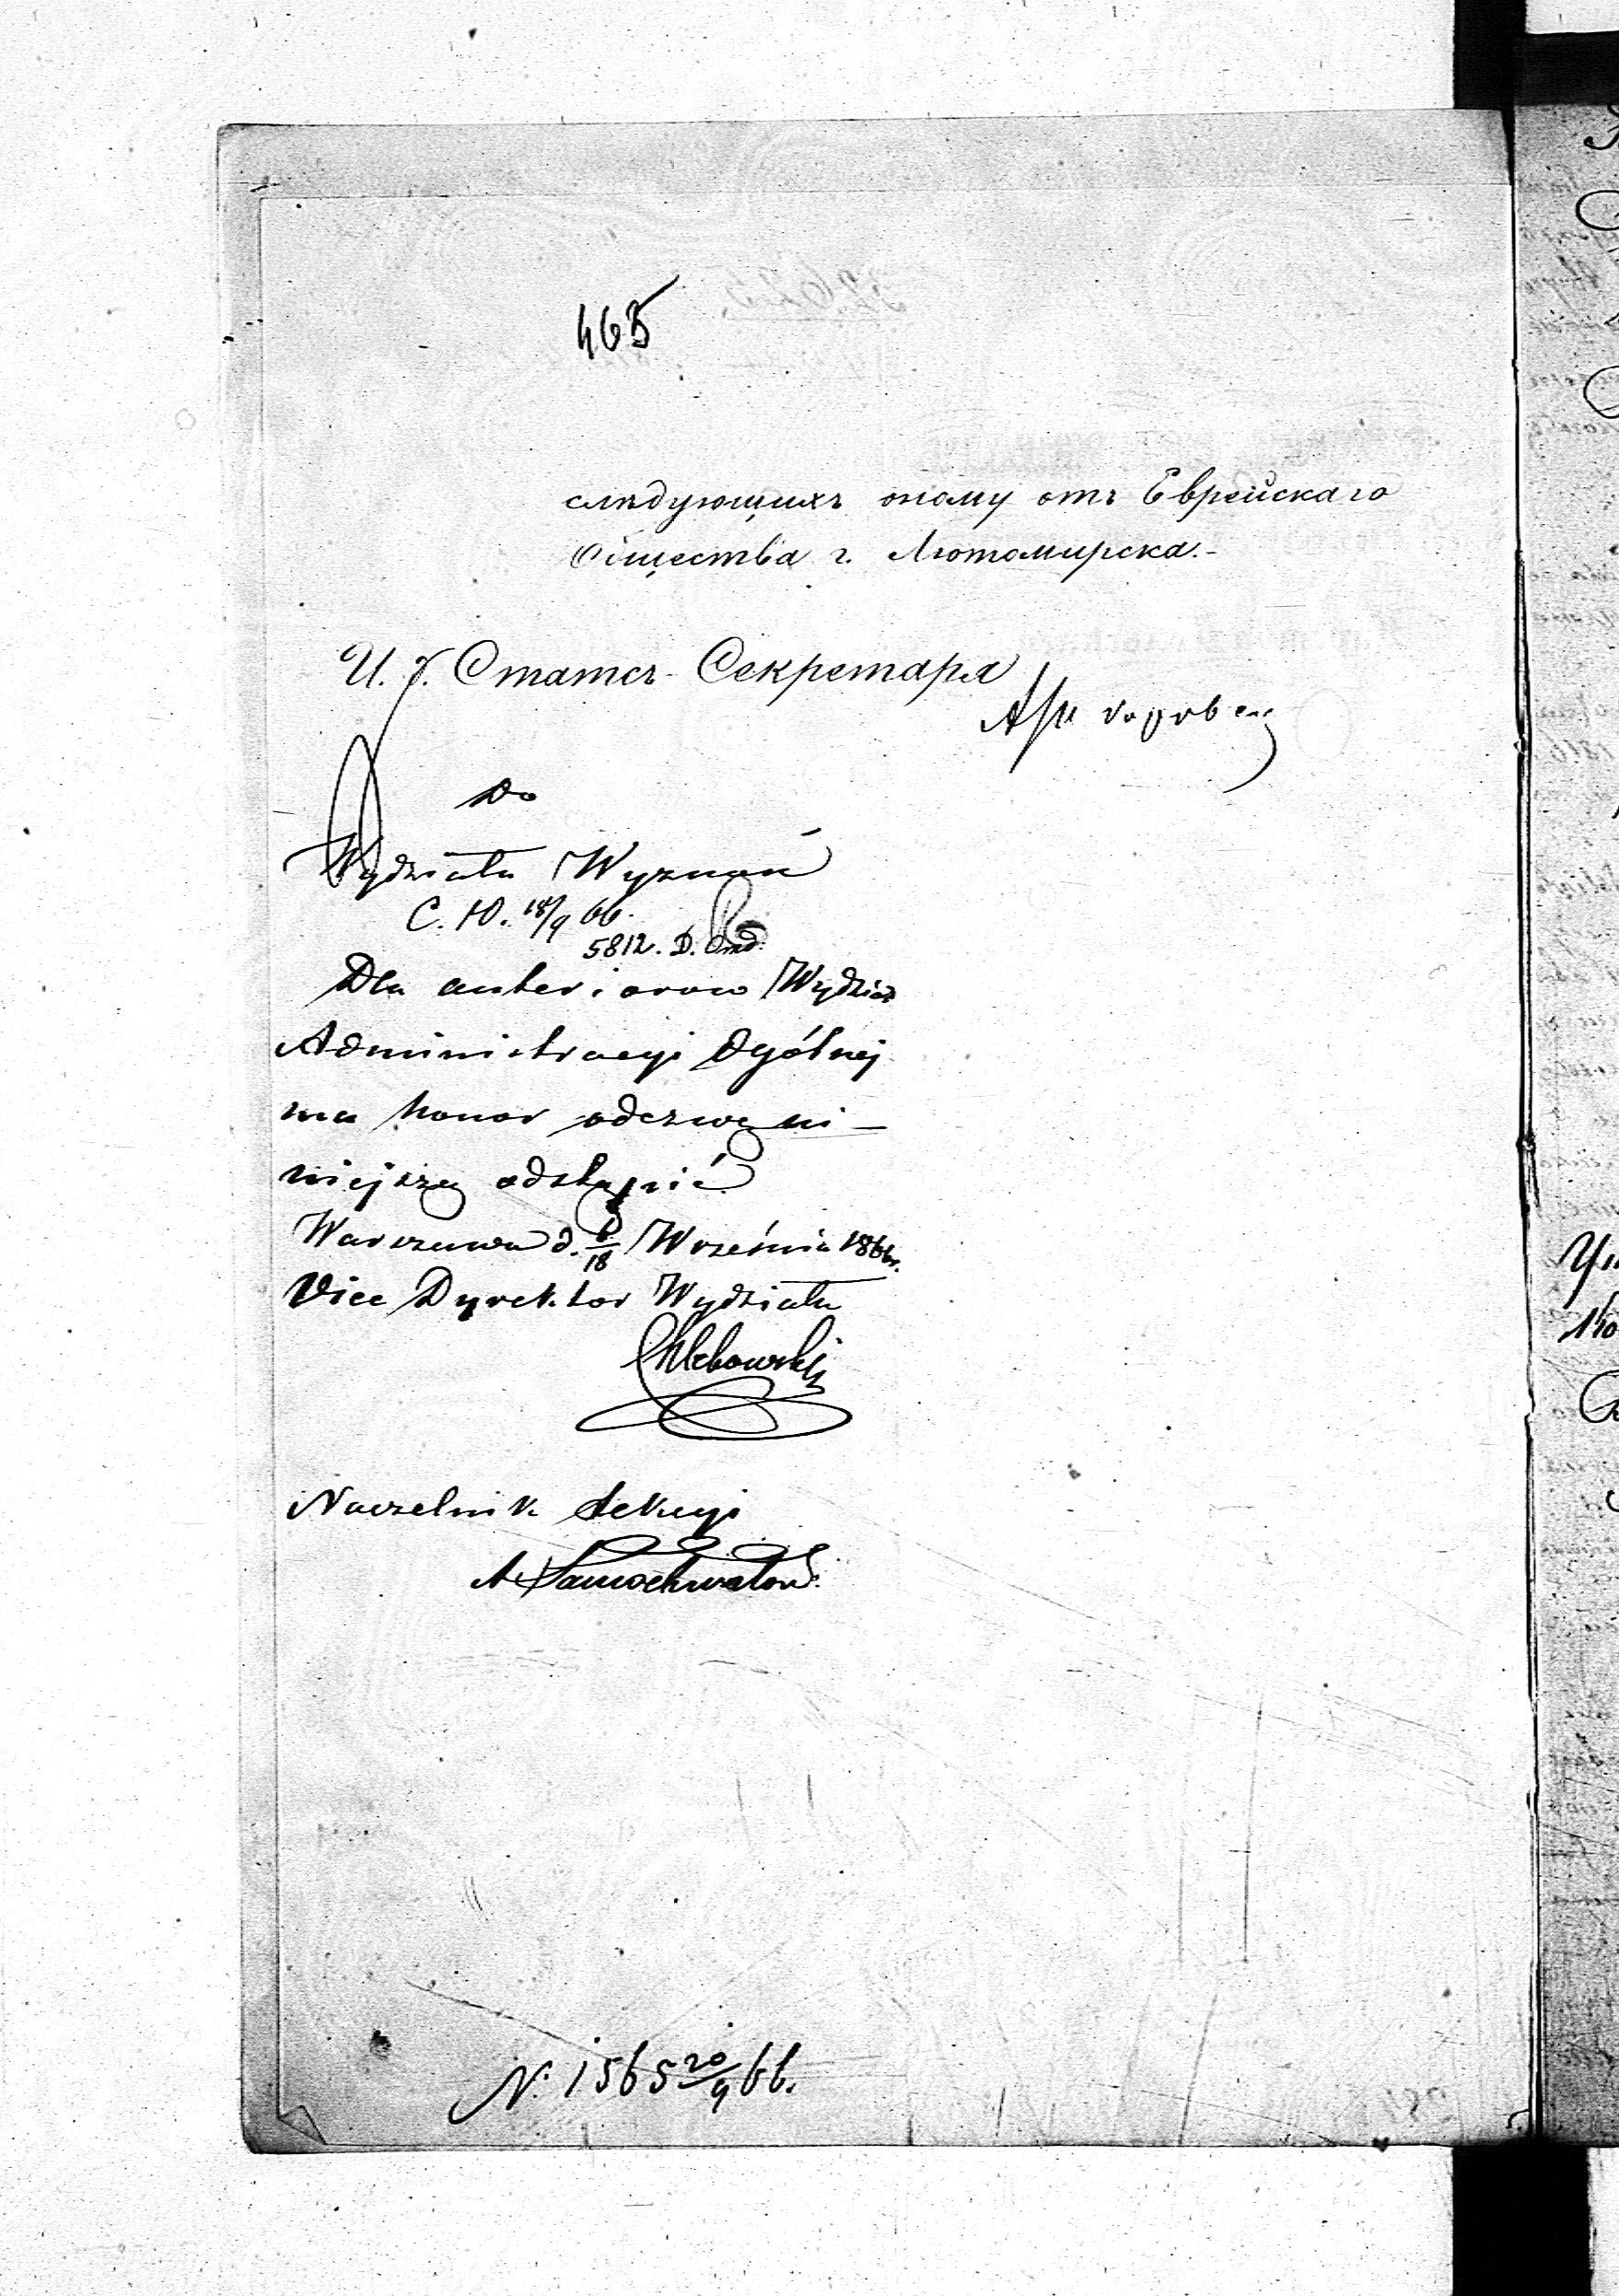 465
слѣдующихъ оному отъ Еврейскаго
Общества г. Лютомирска.-
И. д. Статсъ-Секретаря
Do
Wydziału Wyznań
С. Ю. 18/9 66.
5812. D.
Dla anteriorów Wydział
Administracyi Ogólnej
ma honor odezwę ni-
niejszą odstąpić
Warszawa d. 6/18 Września 1866r.
Vice Dyrektor Wydziału
Chlebowski
Naczelnik Sekcyi
A Samochwałow
N: 1565 20/9 66.